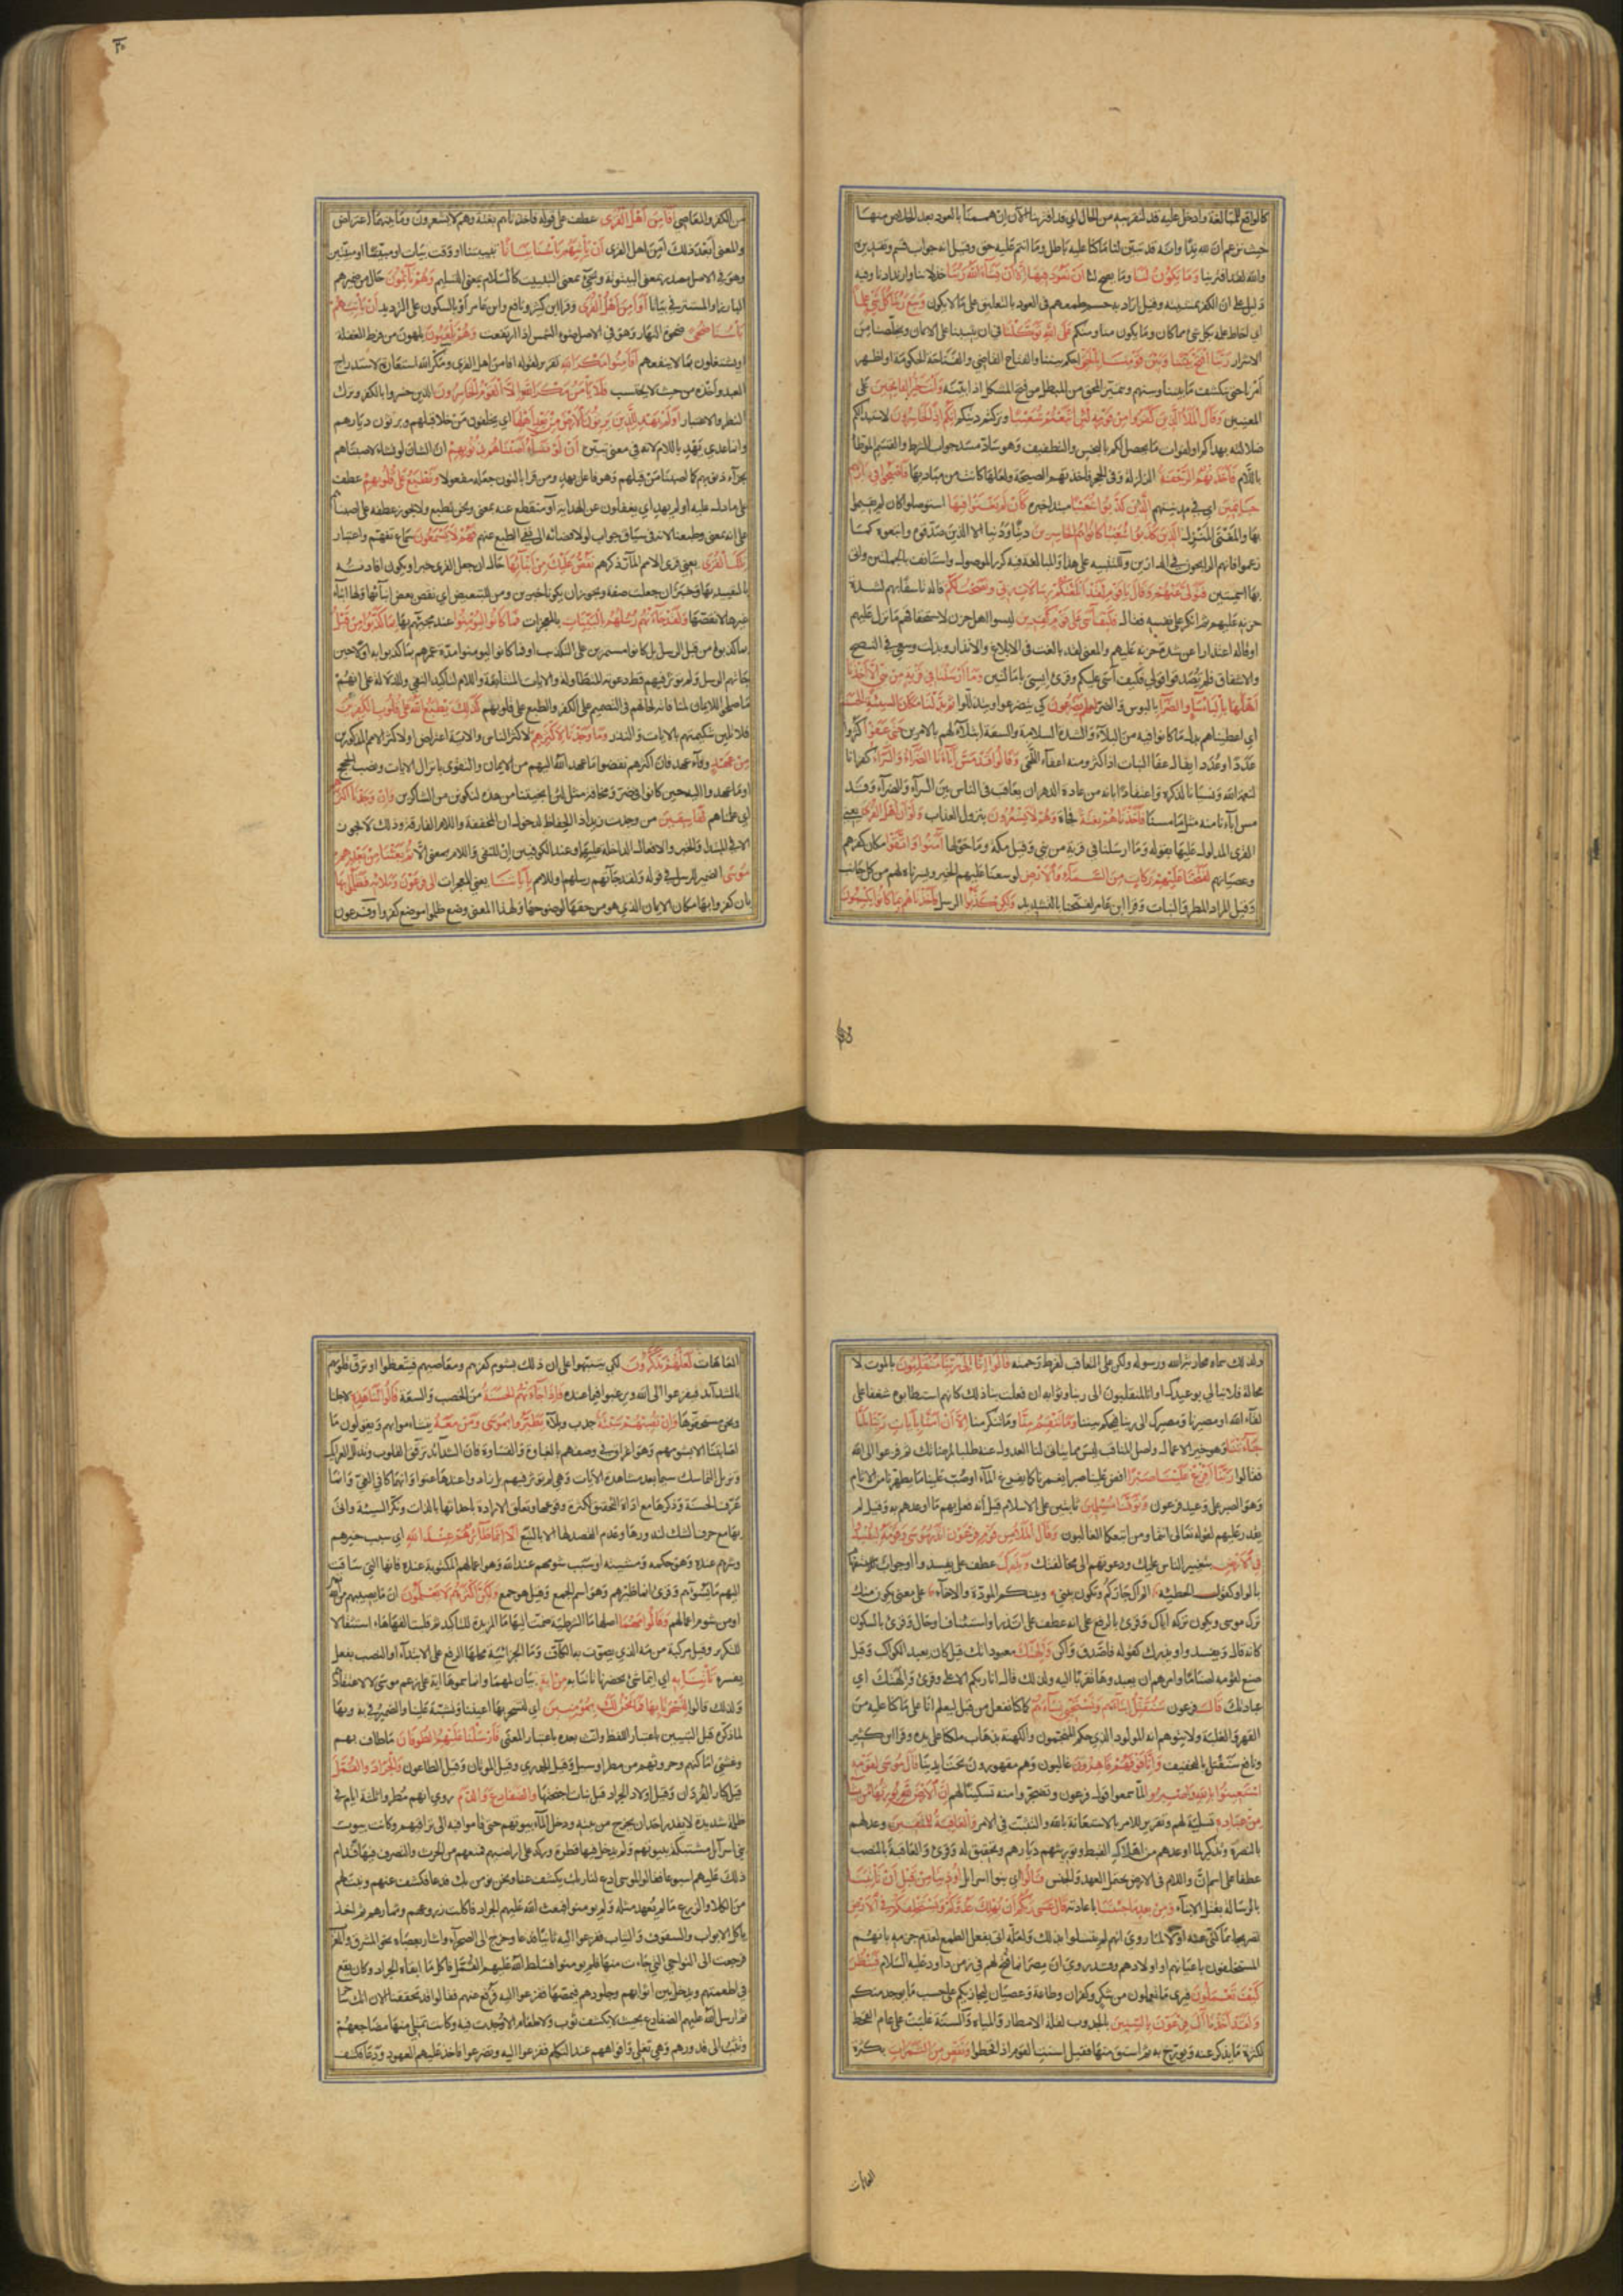 كالواقع للمبالغة وادخل عليه قد لتقريبه من الحال اي قد افترينا الآن ان هممنا بالعود بعد الخلاص منها
حيث نزعم ان لله ندا وانه قد تبين لنا ما كنا عليه باطل وما انتم عليه حق وقيل انه جواب قسم وتقديره
والله لقد افترينا وَمَا يَكُونُ لَنَا وما يصح لنا اَنْ نَعُودَ فِيهَا اِلَّا اَنْ يَشَاءَ اللهُ رَبُّنَا خذلاننا وارتدادنا وفيه
دليل على ان الكفر بمشيئته وقيل اراد به حسم طمعهم في العود بالتعليق على ما لا يكون وَسِعَ رَبُّنَا كُلَّ شَيْءٍ عِلْمًا
اي احاط علمه بكل شئ مما كان وما يكون منا ومنكم عَلَى اللهِ تَوَكَّلْنَا في ان يثبتنا على الايمان ويخلصنا من
الاشرار رَبَّنَا افْتَحْ بَيْنَنَا وَبَيْنَ قَوْمِنَا بِالْحَقِّ احكم بيننا والفتاح القاضي والفتاحة الحكومة او اظهر
امرنا حتى ينكشف ما بيننا وبينهم ويتميز المحق من المبطل من فتح المشكل اذا بينه وَاَنْتَ خَيْرُ الْفَاتِحِينَ على
المعنيين وَقَالَ الْمَلَأُ الَّذِينَ كَفَرُوا مِنْ قَوْمِهِ لَئِنِ اتَّبَعْتُمْ شُعَيْبًا وتركتم دينكم اِنَّكُمْ اِذًا لَخَاسِرُونَ لاستبدالكم
ضلالته بهداكم او لفوات ما يحصل لكم بالبخس والتطفيف وهو ساد مسد جواب الشرط والقسم الموطأ
باللام فَاَخَذَتْهُمُ الرَّجْفَةُ الزلزلة وفي الحجر فاخذتهم الصيحة ولعلها كانت من مباديها فَاَصْبَحُوا فِي دَارِهِمْ
جَاثِمِينَ اي في مدينتهم اَلَّذِينَ كَذَّبُوا شُعَيْبًا مبتدا خبره كَاَنْ لَمْ يَغْنَوْا فِيهَا استوصلوا كان لم يقيموا
بها والمغنى المنزل اَلَّذِينَ كَذَّبُوا شُعَيْبًا كَانُوا هُمُ الْخَاسِرِينَ دينا ودنيا لا الذين صدقوه واتبعوه كما
زعموا فانهم الرابحون في الدارين وللتنبيه على هذا والمبالغة فيه كرر الموصول واستانف بالجملتين واتى
بها اسميتين فَتَوَلَّى عَنْهُمْ وَقَالَ يَا قَوْمِ لَقَدْ اَبْلَغْتُكُمْ رِسَالَاتِ رَبِّي وَنَصَحْتُ لَكُمْ قاله تاسفا بهم لشدة
حزنه عليهم ثم انكر على نفسه فقال فَكَيْفَ آسَى عَلَى قَوْمٍ كَافِرِينَ ليسوا اهل حزن لاستحقاقهم ما نزل عليهم
او قاله اعتذارا عن شدة حزنه عليهم والمعنى لقد بالغت في الابلاغ والانذار وبذلت وسعي في النصح
والاشفاق فلم تصدقوا قولي فكيف آسى عليكم وقرئ ايسى بامالتين وَمَا اَرْسَلْنَا فِي قَرْيَةٍ مِنْ نَبِيٍّ اِلَّا اَخَذْنَا
اَهْلَهَا بِالْبَأْسَاءِ وَالضَّرَّاءِ بالبوس والضر لَعَلَّهُمْ يَضَّرَّعُونَ كي يتضرعوا ويتذللوا ثُمَّ بَدَّلْنَا مَكَانَ السَّيِّئَةِ الْحَسَنَةَ
اي اعطيناهم بدل ما كانوا فيه من البلاء والشدة السلامة والسعة ابتلاء لهم بالامرين حَتَّى عَفَوْا كثروا
عَدَدًا وعُدَدًا يقال عفا النبات اذا كثر ومنه اعفاء اللحى وَقَالُوا قَدْ مَسَّ آبَاءَنَا الضَّرَّاءُ وَالسَّرَّاءُ كفرانا
لنعمة الله ونسيانا لذكره واعتقادا بانه من عادة الدهر ان يعاقب في الناس بين السراء والضراء وقد
مس آباءنا منه مثل ما مسنا فَاَخَذْنَاهُمْ بَغْتَةً فجاة وَهُمْ لَا يَشْعُرُونَ بنزول العذاب وَلَوْ اَنَّ اَهْلَ الْقُرَى يعني
القرى المدلول عليها بقوله وما ارسلنا في قرية من نبي وقيل مكة وما حولها آمَنُوا وَاتَّقَوْا مكان كفرهم
وعصيانهم لَفَتَحْنَا عَلَيْهِمْ بَرَكَاتٍ مِنَ السَّمَاءِ وَالْاَرْضِ لوسعنا عليهم الخير ويسرناه لهم من كل جانب
وقيل المراد المطر والنبات وقرا ابن عامر لفتحنا بالتشديد وَلَكِنْ كَذَّبُوا الرسل فَاَخَذْنَاهُمْ بِمَا كَانُوا يَكْسِبُونَ
من الكفر والمعاصي اَفَاَمِنَ اَهْلُ الْقُرَى عطف على قوله فاخذناهم بغتة وهم لا يشعرون وما بينهما اعتراض
والمعنى ابعد ذلك امن اهل القرى اَنْ يَأْتِيَهُمْ بَأْسُنَا بَيَاتًا تبييتا او وقت بيات او مبيتا او مبيتين
وهو في الاصل مصدر بمعنى البيتوتة ويجيء بمعنى التبييت كالسلام بمعنى التسليم وَهُمْ نَائِمُونَ حال من ضميرهم
البارز او المستتر في بياتا اَوَاَمِنَ اَهْلُ الْقُرَى وقرا ابن كثير ونافع وابن عامر او بالسكون على الترديد اَنْ يَأْتِيَهُمْ
بَأْسُنَا ضُحًى ضحوة النهار وهو في الاصل ضوء الشمس اذا ارتفعت وَهُمْ يَلْعَبُونَ يلهون من فرط الغفلة
او يشتغلون بما لا ينفعهم اَفَاَمِنُوا مَكْرَ اللهِ تقرير لقوله افامن اهل القرى ومكر الله استعارة لاستدراج
العبد واخذه من حيث لا يحتسب فَلَا يَأْمَنُ مَكْرَ اللهِ اِلَّا الْقَوْمُ الْخَاسِرُونَ الذين خسروا بالكفر وترك
النظر والاعتبار اَوَلَمْ يَهْدِ لِلَّذِينَ يَرِثُونَ الْاَرْضَ مِنْ بَعْدِ اَهْلِهَا اي يخلفون من خلا قبلهم ويرثون ديارهم
وانما عدي يهد باللام لانه في معنى يبين اَنْ لَوْ نَشَاءُ اَصَبْنَاهُمْ بِذُنُوبِهِمْ ان الشان لو نشاء لاصبناهم
بجزاء ذنوبهم كما اصبنا من قبلهم وهو فاعل يهد ومن قرا بالنون جعله مفعولا وَنَطْبَعُ عَلَى قُلُوبِهِمْ عطف
على ما دل عليه اولم يهد اي يغفلون عن الهداية او منقطع عنه بمعنى ونحن نطبع ولا يجوز عطفه على اصبنا
على انه بمعنى وطبعنا لانه في سياق جواب لو لافضائه الى نفي الطبع عنهم فَهُمْ لَا يَسْمَعُونَ سماع تفهم واعتبار
تِلْكَ الْقُرَى يعني قرى الامم المار ذكرهم نَقُصُّ عَلَيْكَ مِنْ اَنْبَائِهَا حال ان جعل القرى خبرا ويكون افادته
بالتقييد بها وخبر ان جعلت صفة ويجوز ان يكونا خبرين ومن للتبعيض اي نقص بعض انبائها ولها انباء
غيرها لا نقصها وَلَقَدْ جَاءَتْهُمْ رُسُلُهُمْ بِالْبَيِّنَاتِ بالمعجزات فَمَا كَانُوا لِيُؤْمِنُوا عند مجيئهم بها بِمَا كَذَّبُوا مِنْ قَبْلُ
بما كذبوه من قبل الرسل بل كانوا مستمرين على التكذيب او فما كانوا ليومنوا مدة عمرهم بما كذبوا به اولا حين
جاءتهم الرسل ولم تؤثر فيهم قط دعوتهم المتطاولة والايات المتتابعة واللام لتاكيد النفي والدلالة على انهم
ما صلحوا للايمان لمنافاته لحالهم في التصميم على الكفر والطبع على قلوبهم كَذَلِكَ يَطْبَعُ اللهُ عَلَى قُلُوبِ الْكَافِرِينَ
فلا تلين شكيمتهم بالايات والنذر وَمَا وَجَدْنَا لِاَكْثَرِهِمْ لاكثر الناس والاية اعتراض او لاكثر الامم المذكورين
مِنْ عَهْدٍ وفاء عهد فان اكثرهم نقضوا ما عهد الله اليهم من الايمان والتقوى بانزال الايات ونصب الحجج
او ما عهدوا اليه حين كانوا في ضر ومخافة مثل لئن انجيتنا من هذه لنكونن من الشاكرين وَاِنْ وَجَدْنَا اَكْثَرَهُمْ
اي علمناهم لَفَاسِقِينَ من وجدت زيدا ذا الحفاظ لدخول ان المخففة واللام الفارقة وذلك لا يجوز
الا في المبتدا والخبر والافعال الداخلة عليهما وعند الكوفيين ان للنفي واللام بمعنى الا ثُمَّ بَعَثْنَا مِنْ بَعْدِهِمْ
مُوسَى الضمير للرسل في قوله ولقد جاءتهم رسلهم او للامم بِآيَاتِنَا يعني المعجزات اِلَى فِرْعَوْنَ وَمَلَائِهِ فَظَلَمُوا بِهَا
بان كفروا بها مكان الايمان الذي هو من حقها لوضوحها ولهذا المعنى وضع ظلموا موضع كفروا وفرعون
ولذلك سماه محاربة لله ورسوله ولكن على التعاقب لفرط رحمته قَالُوا اِنَّا اِلَى رَبِّنَا مُنْقَلِبُونَ بالموت لا
محالة فلا نبالي بوعيدك او انا لمنقلبون الى ربنا وثوابه ان فعلت بنا ذلك كانهم استطابوه شغفا على
لقاء الله او مصيرنا ومصيرك الى ربنا فيحكم بيننا وَمَا تَنْقِمُ مِنَّا وما تنكر منا اِلَّا اَنْ آمَنَّا بِآيَاتِ رَبِّنَا لَمَّا
جَاءَتْنَا وهو خير الاعمال واصل المناقب ليس مما يتاتى لنا العدول عنه طلبا لمرضاتك ثم فزعوا الى الله
فقالوا رَبَّنَا اَفْرِغْ عَلَيْنَا صَبْرًا افض علينا صبرا يغمرنا كما يفرغ الماء او صب علينا ما يطهرنا من الاثام
وهو الصبر على وعيد فرعون وَتَوَفَّنَا مُسْلِمِينَ ثابتين على الاسلام قيل انه فعل بهم ما اوعدهم به وقيل لم
يقدر عليهم لقوله تعالى انتما ومن اتبعكما الغالبون وَقَالَ الْمَلَأُ مِنْ قَوْمِ فِرْعَوْنَ اَتَذَرُ مُوسَى وَقَوْمَهُ لِيُفْسِدُوا
فِي الْاَرْضِ بتغيير الناس عليك ودعوتهم الى مخالفتك وَيَذَرَكَ عطف على يفسدوا او جواب الاستفهام
بالواو كقول الحطيئة الم اك جاركم وتكون بيني وبينكم المودة والاخاء على معنى ايكون منك
ترك موسى ويكون تركه اياك وقرئ بالرفع على انه عطف على اتذر او استئناف او حال وقرئ بالسكون
كانه قال ويفسدوا ويذرك كقوله فاصدق واكن وَآلِهَتَكَ معبوداتك قيل كان يعبد الكواكب وقيل
صنع لقومه اصناما وامرهم ان يعبدوها تقربا اليه ولذلك قال انا ربكم الاعلى وقرئ والاهتك اي
عبادتك قَالَ فرعون سَنُقَتِّلُ اَبْنَاءَهُمْ وَنَسْتَحْيِي نِسَاءَهُمْ كما كنا نفعل من قبل ليعلم انا على ما كنا عليه من
القهر والغلبة ولا يتوهم انه المولود الذي حكم المنجمون والكهنة بذهاب ملكنا على يده وقرا ابن كثير
ونافع سنقتل بالتخفيف وَاِنَّا فَوْقَهُمْ قَاهِرُونَ غالبون وهم مقهورون تحت ايدينا قَالَ مُوسَى لِقَوْمِهِ
اسْتَعِينُوا بِاللهِ وَاصْبِرُوا لما سمعوا قول فرعون وتضجروا منه تسكينا لهم اِنَّ الْاَرْضَ لِلهِ يُورِثُهَا مَنْ يَشَاءُ
مِنْ عِبَادِهِ تسلية لهم وتقرير للامر بالاستعانة بالله والتثبت في الامر وَالْعَاقِبَةُ لِلْمُتَّقِينَ وعد لهم
بالنصرة وتذكير لما اوعدهم من اهلاك القبط وتوريثهم ديارهم وتحقيق له وقرئ والعاقبة بالنصب
عطفا على اسم ان واللام في الارض تحتمل العهد والجنس قَالُوا اي بنوا اسرائيل اُوذِينَا مِنْ قَبْلِ اَنْ تَأْتِيَنَا
بالرسالة بقتل الابناء وَمِنْ بَعْدِ مَا جِئْتَنَا باعادته قَالَ عَسَى رَبُّكُمْ اَنْ يُهْلِكَ عَدُوَّكُمْ وَيَسْتَخْلِفَكُمْ فِي الْاَرْضِ
تصريحا بما كنى عنه اولا لما راى انهم لم يتسلوا بذلك ولعله اتى بفعل الطمع لعدم جزمه بانهم
المستخلفون باعيانهم او اولادهم وقد روي ان مصر انما فتح لهم في زمن داود عليه السلام فَيَنْظُرَ
كَيْفَ تَعْمَلُونَ فيرى ما تعملون من شكر وكفران وطاعة وعصيان ليجازيكم على حسب ما يوجد منكم
وَلَقَدْ اَخَذْنَا آلَ فِرْعَوْنَ بِالسِّنِينَ بالجدوب لقلة الامطار والمياه والسنة غلبت على عام القحط
لكثرة ما يذكر عنه ويورخ به ثم اشتق منها فقيل اسنت القوم اذا قحطوا وَنَقْصٍ مِنَ الثَّمَرَاتِ بكثرة
العاهات
العاهات لَعَلَّهُمْ يَذَّكَّرُونَ لكي يتنبهوا على ان ذلك بشوم كفرهم ومعاصيهم فيتعظوا او ترق قلوبهم
بالشدائد فيفزعوا الى الله ويرغبوا فيما عنده فَاِذَا جَاءَتْهُمُ الْحَسَنَةُ من الخصب والسعة قَالُوا لَنَا هَذِهِ لاجلنا
ونحن مستحقوها وَاِنْ تُصِبْهُمْ سَيِّئَةٌ جدب وبلاء يَطَّيَّرُوا بِمُوسَى وَمَنْ مَعَهُ يتشاءموا بهم ويقولون ما
اصابتنا الا بشومهم وهو اغراق في وصفهم بالغباوة والقساوة فان الشدائد ترقق القلوب وتذلل العرائك
وتزيل التماسك سيما بعد مشاهدة الايات وهي لم تؤثر فيهم بل زادوا عندها عتوا وانهماكا في الغي وانما
عرف الحسنة وذكرها مع اداة التحقيق لكثرة وقوعها وتعلق الارادة باحداثها بالذات ونكر السيئة واتى
بها مع حرف الشك لندورها وعدم القصد لها الا بالتبع اَلَا اِنَّمَا طَائِرُهُمْ عِنْدَ اللهِ اي سبب خيرهم
وشرهم عنده وهو حكمه ومشيئته او سبب شومهم عند الله وهو اعمالهم المكتوبة عنده فانها التي ساقت
اليهم ما يسوءهم وقرئ انما طيرهم وهو اسم الجمع وقيل هو جمع وَلَكِنَّ اَكْثَرَهُمْ لَا يَعْلَمُونَ ان ما يصيبهم من الله
او من شوم اعمالهم وَقَالُوا مَهْمَا اصلها ما الشرطية ضمت اليها ما المزيدة للتاكيد ثم قلبت الفها هاء استثقالا
للتكرير وقيل مركبة من مه الذي يصوت به الكاف وما الجزائية محلها الرفع على الابتداء او النصب بفعل
يفسره تَأْتِنَا بِهِ اي ايما شئ تحضرنا تاتنا به مِنْ آيَةٍ بيان لمهما وانما سموها اية على زعم موسى لا لاعتقادهم
ولذلك قالوا لِتَسْحَرَنَا بِهَا فَمَا نَحْنُ لَكَ بِمُؤْمِنِينَ اي لتسحر بها اعيننا وتشبه علينا والضمير في به وبها
لما ذكره قبل التبيين باعتبار اللفظ وانث بعده باعتبار المعنى فَاَرْسَلْنَا عَلَيْهِمُ الطُّوفَانَ ما طاف بهم
وغشي اماكنهم وحروثهم من مطر او سيل وقيل الجدري وقيل الموتان وقيل الطاعون وَالْجَرَادَ وَالْقُمَّلَ
قيل كبار القردان وقيل اولاد الجراد قبل نبات اجنحتها وَالضَّفَادِعَ وَالدَّمَ روي انهم مطروا ثلثة ايام في
ظلمة شديدة لا يقدر احد ان يخرج من بيته ودخل الماء بيوتهم حتى قاموا فيه الى تراقيهم وكانت بيوت
بني اسرائيل مشتبكة ببيوتهم ولم يدخل فيها قطرة وركد على اراضيهم فمنعهم من الحرث والتصرف فيها ودام
ذلك عليهم اسبوعا فقالوا لموسى ادع لنا ربك يكشف عنا ونحن نؤمن بك فدعا فكشف عنهم ونبت لهم
من الكلا والزرع ما لم يعهد مثله ولم يومنوا فبعث الله عليهم الجراد فاكلت زروعهم وثمارهم ثم اخذ
ياكل الابواب والسقوف والثياب ففزعوا اليه ثانيا فدعا وخرج الى الصحراء واشار بعصاه نحو المشرق والمغرب
فرجعت الى النواحي التي جاءت منها فلم يومنوا فسلط الله عليهم القمل فاكل ما ابقاه الجراد وكان يقع
في اطعمتهم ويدخل بين اثوابهم وجلودهم فيمصها ففزعوا اليه فرفع عنهم فقالوا قد تحققنا الان انك ساحر
ثم ارسل الله عليهم الضفادع بحيث لا يكشف ثوب ولا طعام الا وجدت فيه وكانت تمتلئ منها مضاجعهم
وتثب الى قدورهم وهي تغلي وافواههم عند التكلم ففزعوا اليه وتضرعوا فاخذ عليهم العهود ودعا فكشف